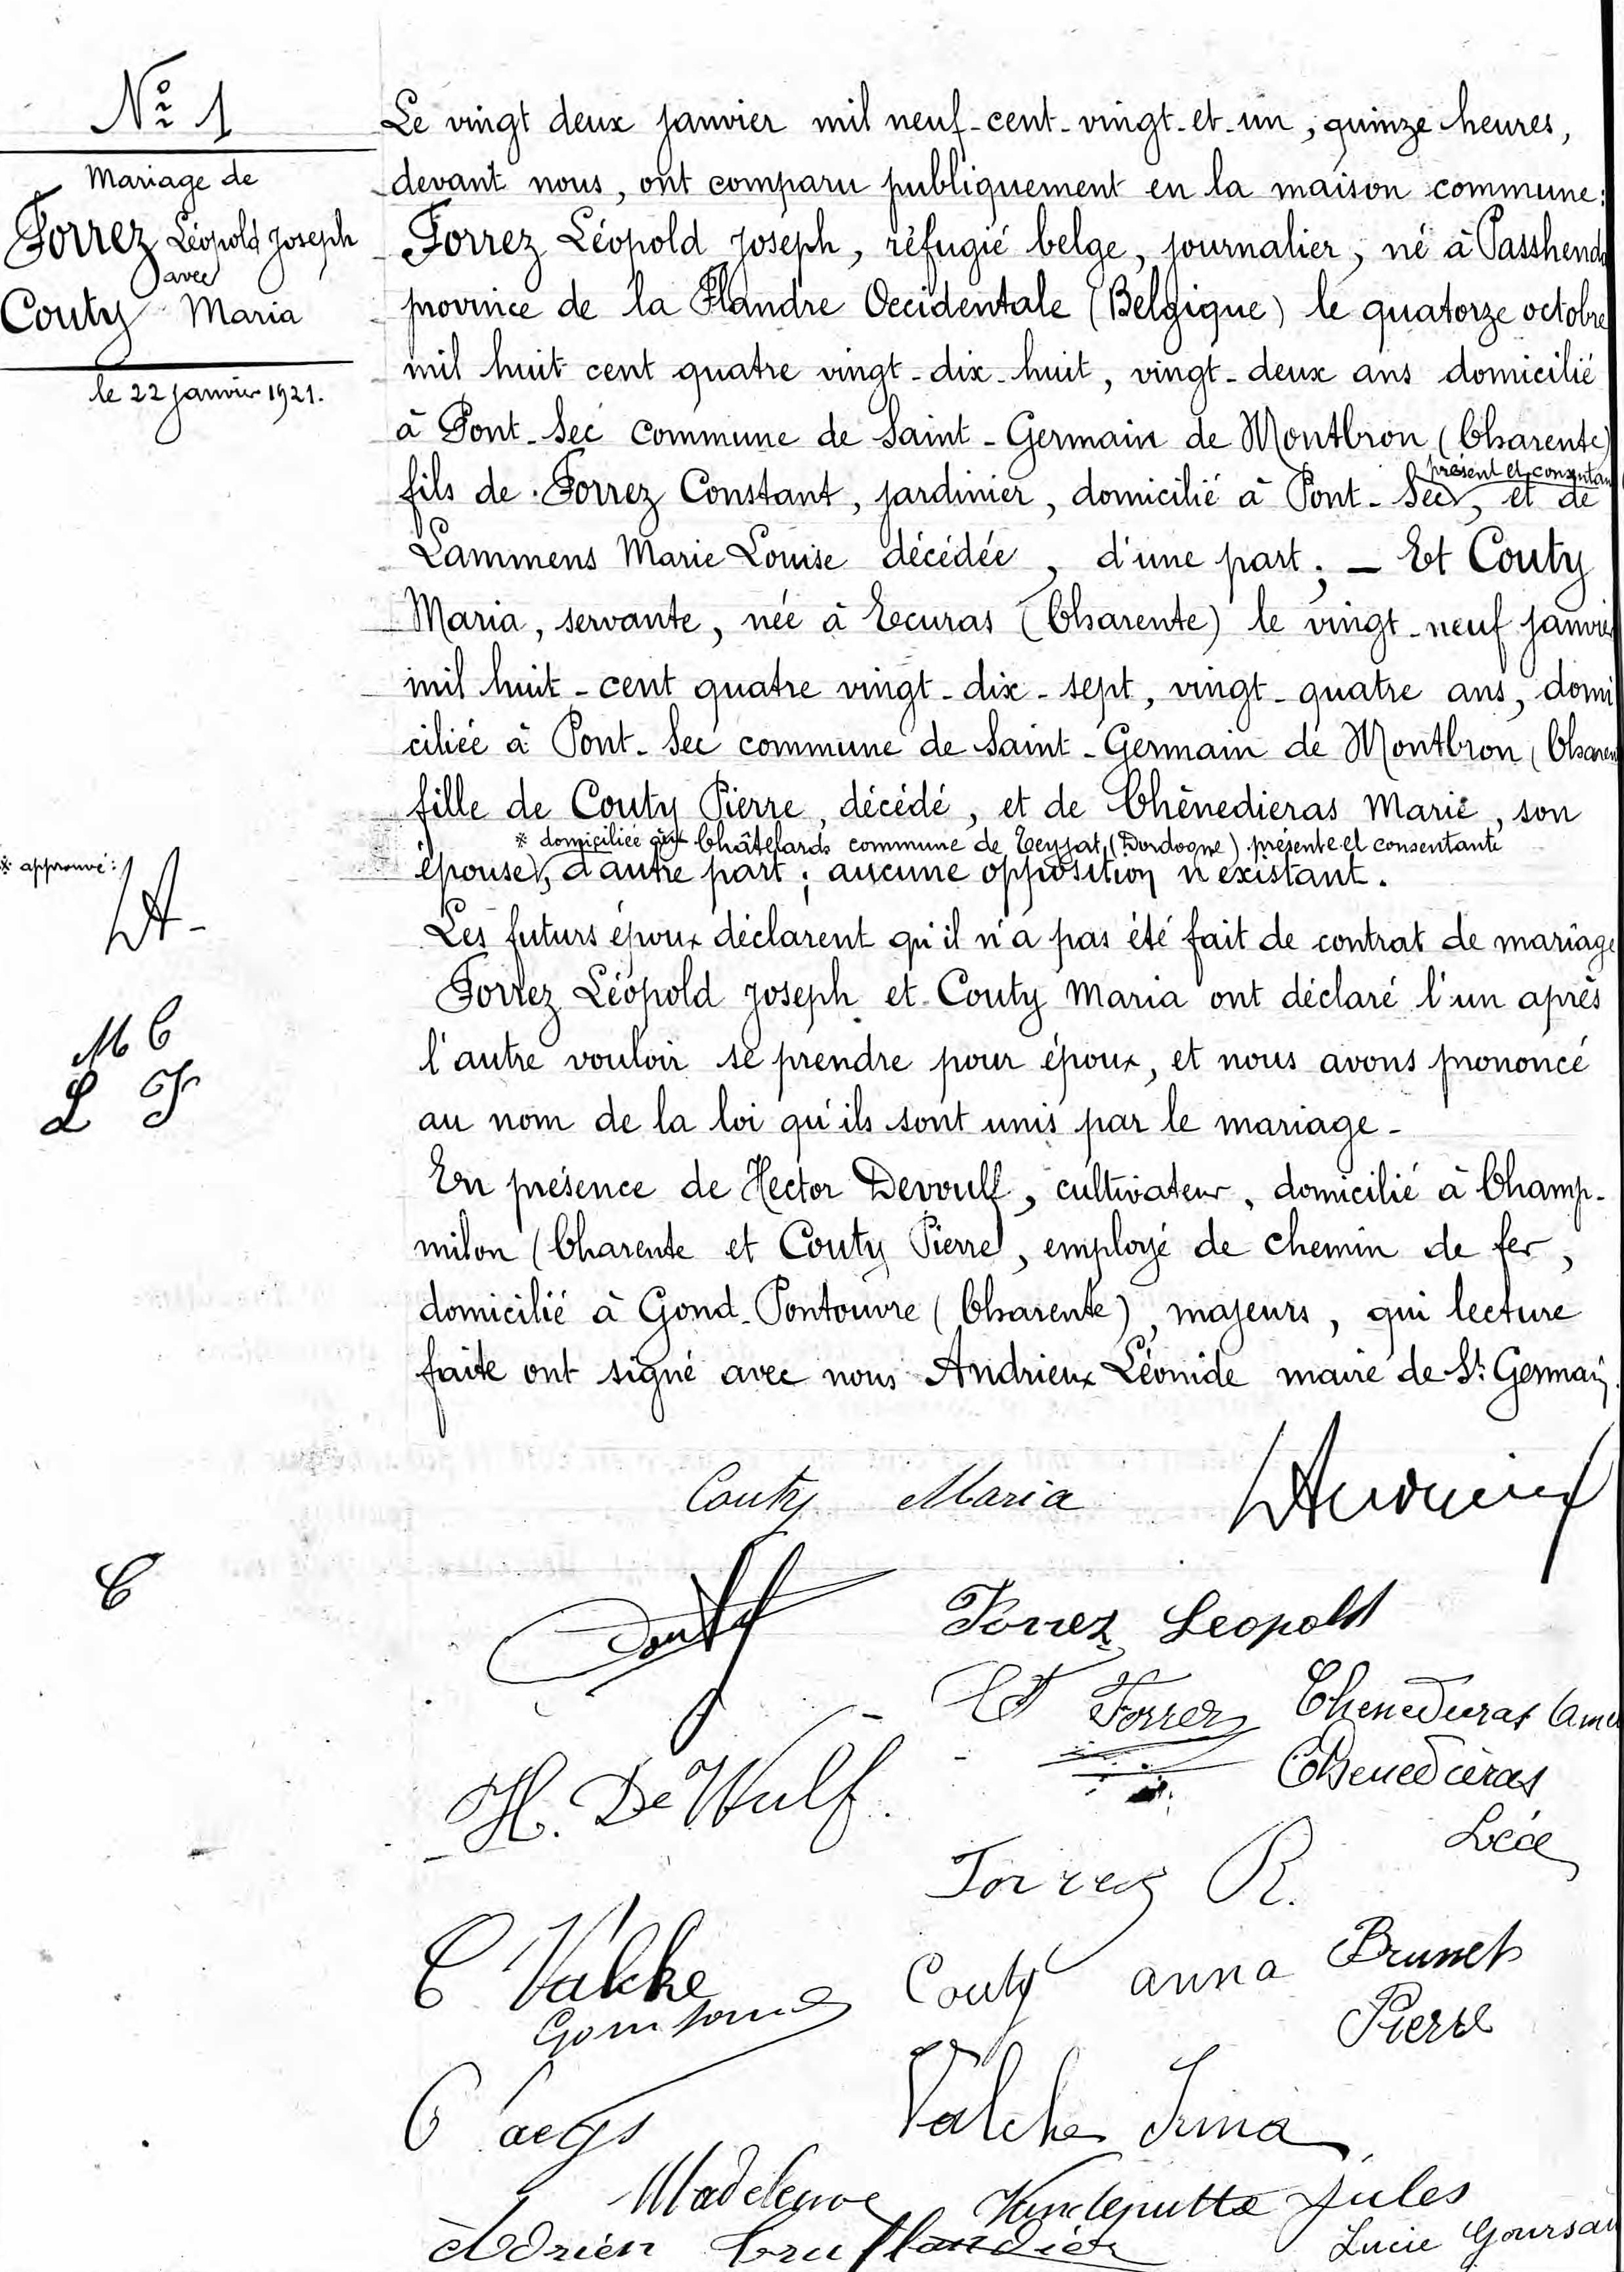 N° 1
Mariage de
Forrez Léopold Joseph
avec
Couty Maria
le 22 janvier 1921.
Le vingt deux janvier mil neuf-cent-vingt-et-un, quinze heures,
devant nous, ont comparu publiquement en la maison commune:
Forrez Léopold Joseph, réfugié belge, journalier, né à Passhend
province de la Flandre Occidentale (Belgique) le quatorze octobre
mil huit cent quatre vingt-dix-huit, vingt-deux ans domicilié
à Pont-Sec commune de Saint-Germain de Montbron (Charente)
présent et consentan
fils de Forrez Constant, jardinier, domicilié à Pont-Sec, et de
Lammens Marie Louise décédée, d'une part; — Et Couty
Maria, servante, née à Ecuras (Charente) le vingt-neuf janvier
mil huit-cent quatre vingt-dix-sept, vingt-quatre ans, domi
ciliée à Pont-Sec commune de Saint-Germain de Montbron (Charen
fille de Couty Pierre, décédé, et de Chênedieras Marie, son
* domiciliée aux Châtelards commune de Teyjat (Dordogne) présente et consentante
épouse, d'autre part; aucune opposition n'existant.
* approuvé:
LA-
Les futurs époux déclarent qu'il n'a pas été fait de contrat de mariage
Forrez Léopold Joseph et Couty Maria ont déclaré l'un après
M C
l'autre vouloir se prendre pour époux, et nous avons prononcé
L F
au nom de la loi qu'ils sont unis par le mariage-
En présence de Hector Devoulf, cultivateur, domicilié à Champ-
milon (Charente et Couty Pierre, employé de chemin de fer,
domicilié à Gond-Pontouvre (Charente), majeurs, qui lecture
faite ont signé avec nous Andrieux Léonide maire de St Germain.
Couty Maria
LAndrieux
C
Couty
Forrez Leopold
Ct Forrez
Chenedieras
H. De Wulf.
Chenedieras
Léa
Forrez R.
C Valcke
Couty anna
Brunet
Pierre
Valcke Irma
Madeleine
Vandeputte Jules
Adrien
Lucie Goursau